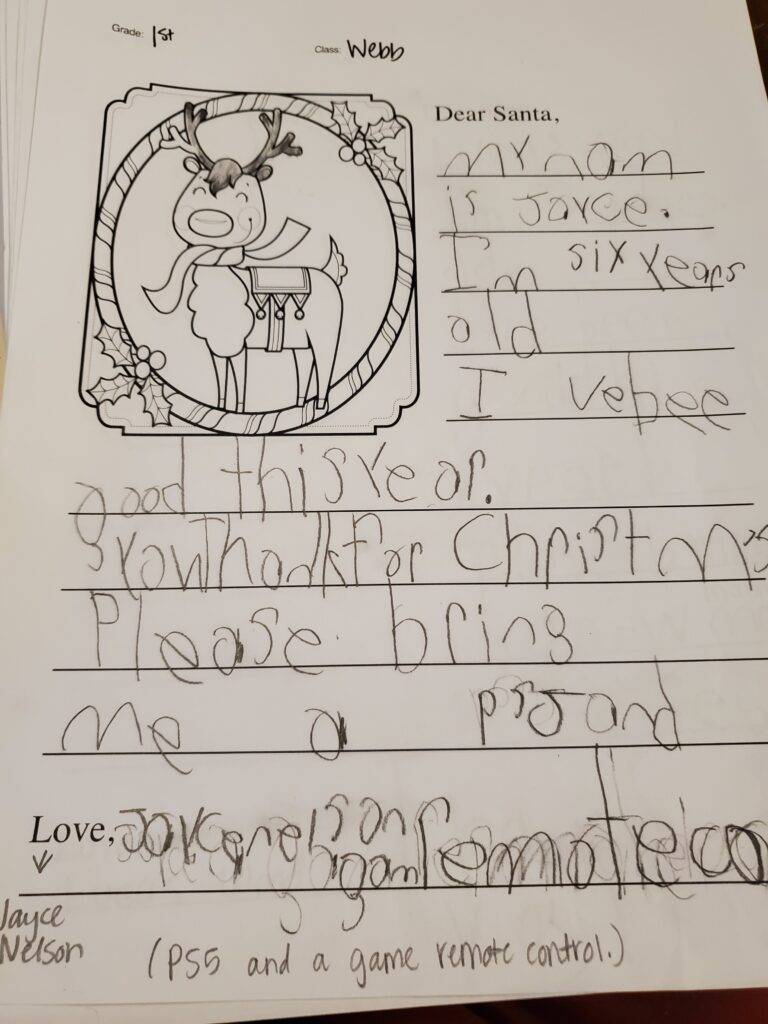 Grade: 1st
Class: Webb
Dear Santa,
my nam
is Jayce.
I'm six years
old
I vebee
good this year.
Thank you for Christmas
Please bring
me a ps5 and
Love, Jayce nelson a gam remote co
Jayce
Nelson
(PS5 and a game remote control.)